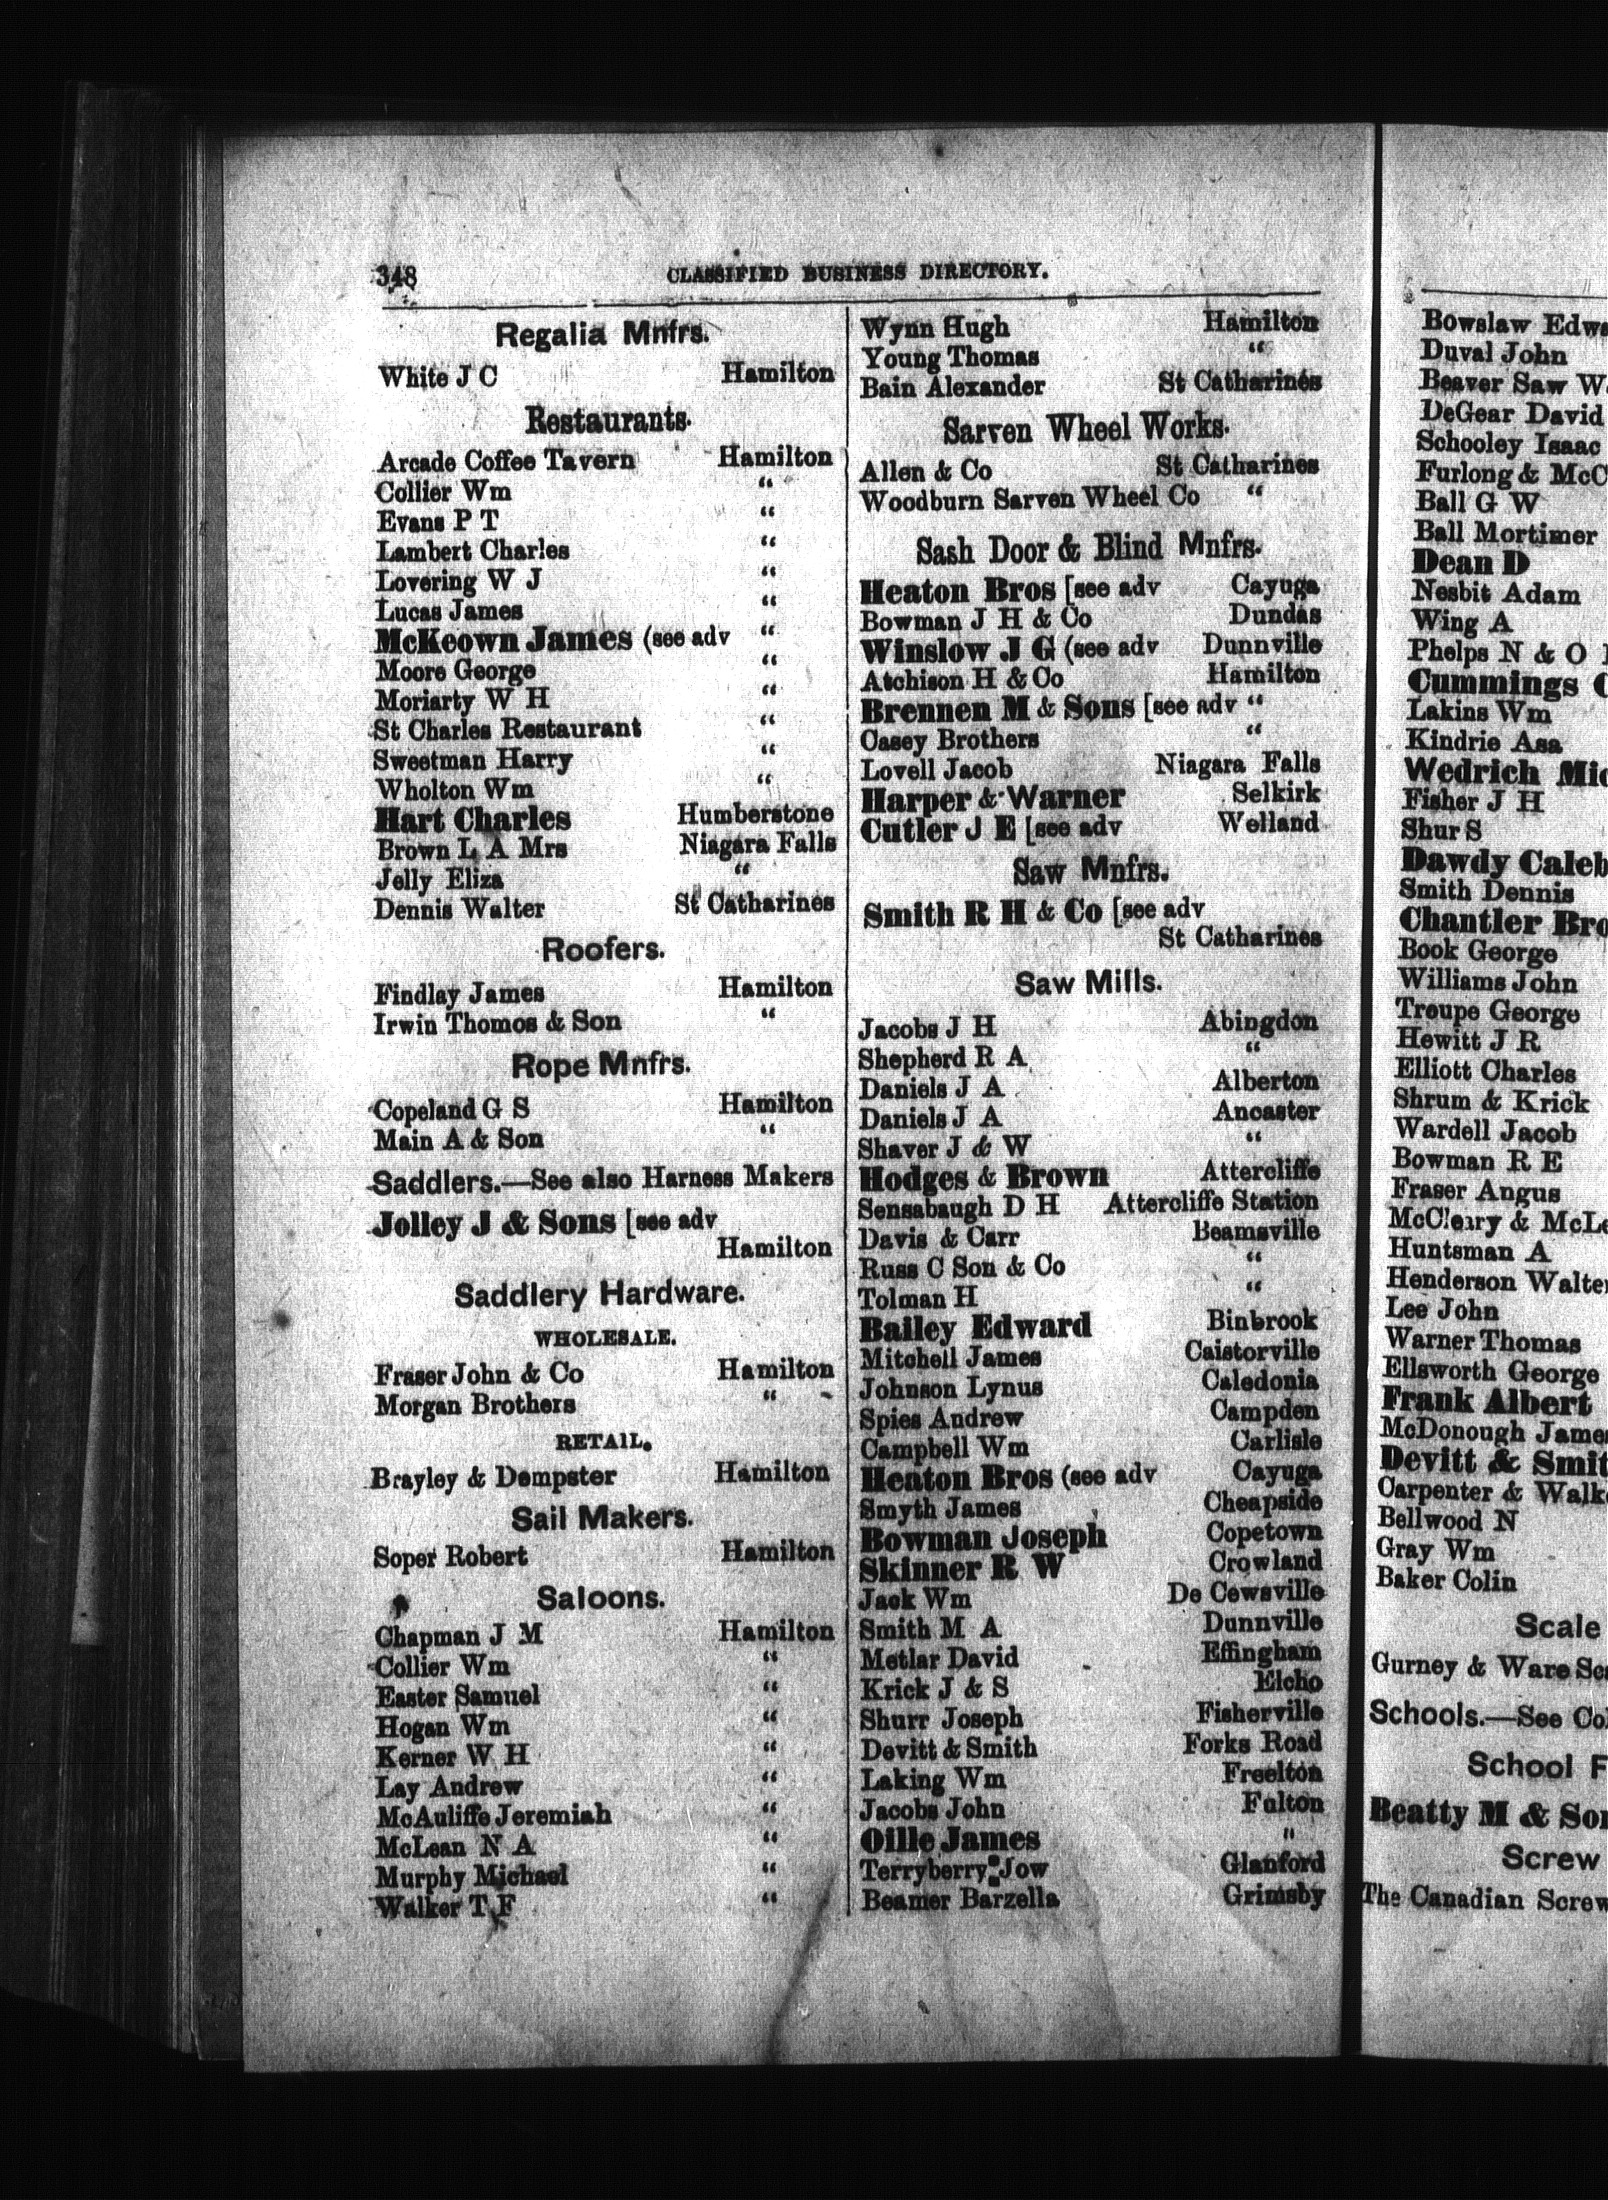 348
CLASSIFIED BUSINESS DIRECTORY.
Regalia Mnfrs.
White J C Hamilton
Restaurants.
Arcade Coffee Tavern Hamilton
Collier Wm "
Evans P T "
Lambert Charles "
Lovering W J "
Lucas James "
McKeown James (see adv "
Moore George "
Moriarty W H "
St Charles Restaurant "
Sweetman Harry "
Wholton Wm "
Hart Charles Humberstone
Brown L A Mrs Niagara Falls
Jelly Eliza "
Dennis Walter St Catharines
Roofers.
Findlay James Hamilton
Irwin Thomos & Son "
Rope Mnfrs.
Copeland G S Hamilton
Main A & Son "
Saddlers.—See also Harness Makers
Jolley J & Sons [see adv
Hamilton
Saddlery Hardware.
WHOLESALE.
Fraser John & Co Hamilton
Morgan Brothers "
RETAIL.
Brayley & Dempster Hamilton
Sail Makers.
Soper Robert Hamilton
Saloons.
Chapman J M Hamilton
Collier Wm "
Easter Samuel "
Hogan Wm "
Kerner W H "
Lay Andrew "
McAuliffe Jeremiah "
McLean N A "
Murphy Michael "
Walker T F "
Wynn Hugh Hamilton
Young Thomas "
Bain Alexander St Catharines
Sarven Wheel Works.
Allen & Co St Catharines
Woodburn Sarven Wheel Co "
Sash Door & Blind Mnfrs.
Heaton Bros [see adv Cayuga
Bowman J H & Co Dundas
Winslow J G (see adv Dunnville
Atchison H & Co Hamilton
Brennen M & Sons [see adv "
Casey Brothers "
Lovell Jacob Niagara Falls
Harper & Warner Selkirk
Cutler J E [see adv Welland
Saw Mnfrs.
Smith R H & Co [see adv
St Catharines
Saw Mills.
Jacobs J H Abingdon
Shepherd R A "
Daniels J A Alberton
Daniels J A Ancaster
Shaver J & W "
Hodges & Brown Attercliffe
Sensabaugh D H Attercliffe Station
Davis & Carr Beamsville
Russ C Son & Co "
Tolman H "
Bailey Edward Binbrook
Mitchell James Caistorville
Johnson Lynus Caledonia
Spies Andrew Campden
Campbell Wm Carlisle
Heaton Bros (see adv Cayuga
Smyth James Cheapside
Bowman Joseph Copetown
Skinner R W Crowland
Jack Wm De Cewsville
Smith M A Dunnville
Metlar David Effingham
Krick J & S Elcho
Shurr Joseph Fisherville
Devitt & Smith Forks Road
Laking Wm Freelton
Jacobs John Fulton
Oille James "
Terryberry Jow Glanford
Beamer Barzella Grimsby
Bowslaw Edw
Duval John
Beaver Saw W
DeGear David
Schooley Isaac
Furlong & McC
Ball G W
Ball Mortimer
Dean D
Nesbit Adam
Wing A
Phelps N & O
Cummings
Lakins Wm
Kindrie Asa
Wedrich Mic
Fisher J H
Shur S
Dawdy Caleb
Smith Dennis
Chantler Bro
Book George
Williams John
Troupe George
Hewitt J R
Elliott Charles
Shrum & Krick
Wardell Jacob
Bowman R E
Fraser Angus
McCleary & McLe
Huntsman A
Henderson Walter
Lee John
Warner Thomas
Ellsworth George
Frank Albert
McDonough James
Devitt & Smit
Carpenter & Walk
Bellwood N
Gray Wm
Baker Colin
Scale
Gurney & Ware Sc
Schools.—See Co
School F
Beatty M & Son
Screw
The Canadian Screw